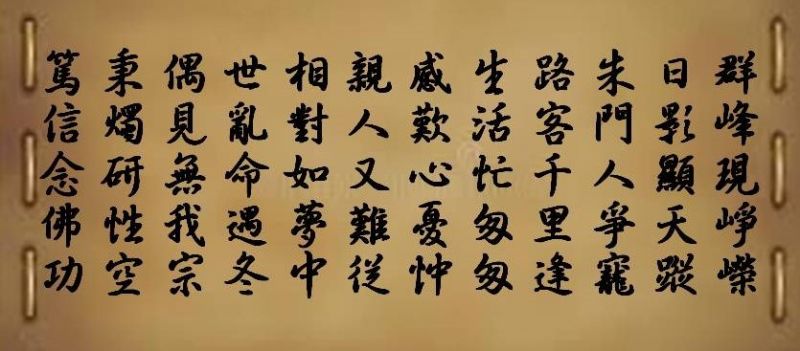 群峰現崢嶸
日影顯天蹤
朱門人爭寵
路客千里逢
生活忙匆匆
感歎心憂忡
親人又難從
相對如夢中
世亂命遇冬
偶見無我宗
秉燭研性空
篤信念佛功